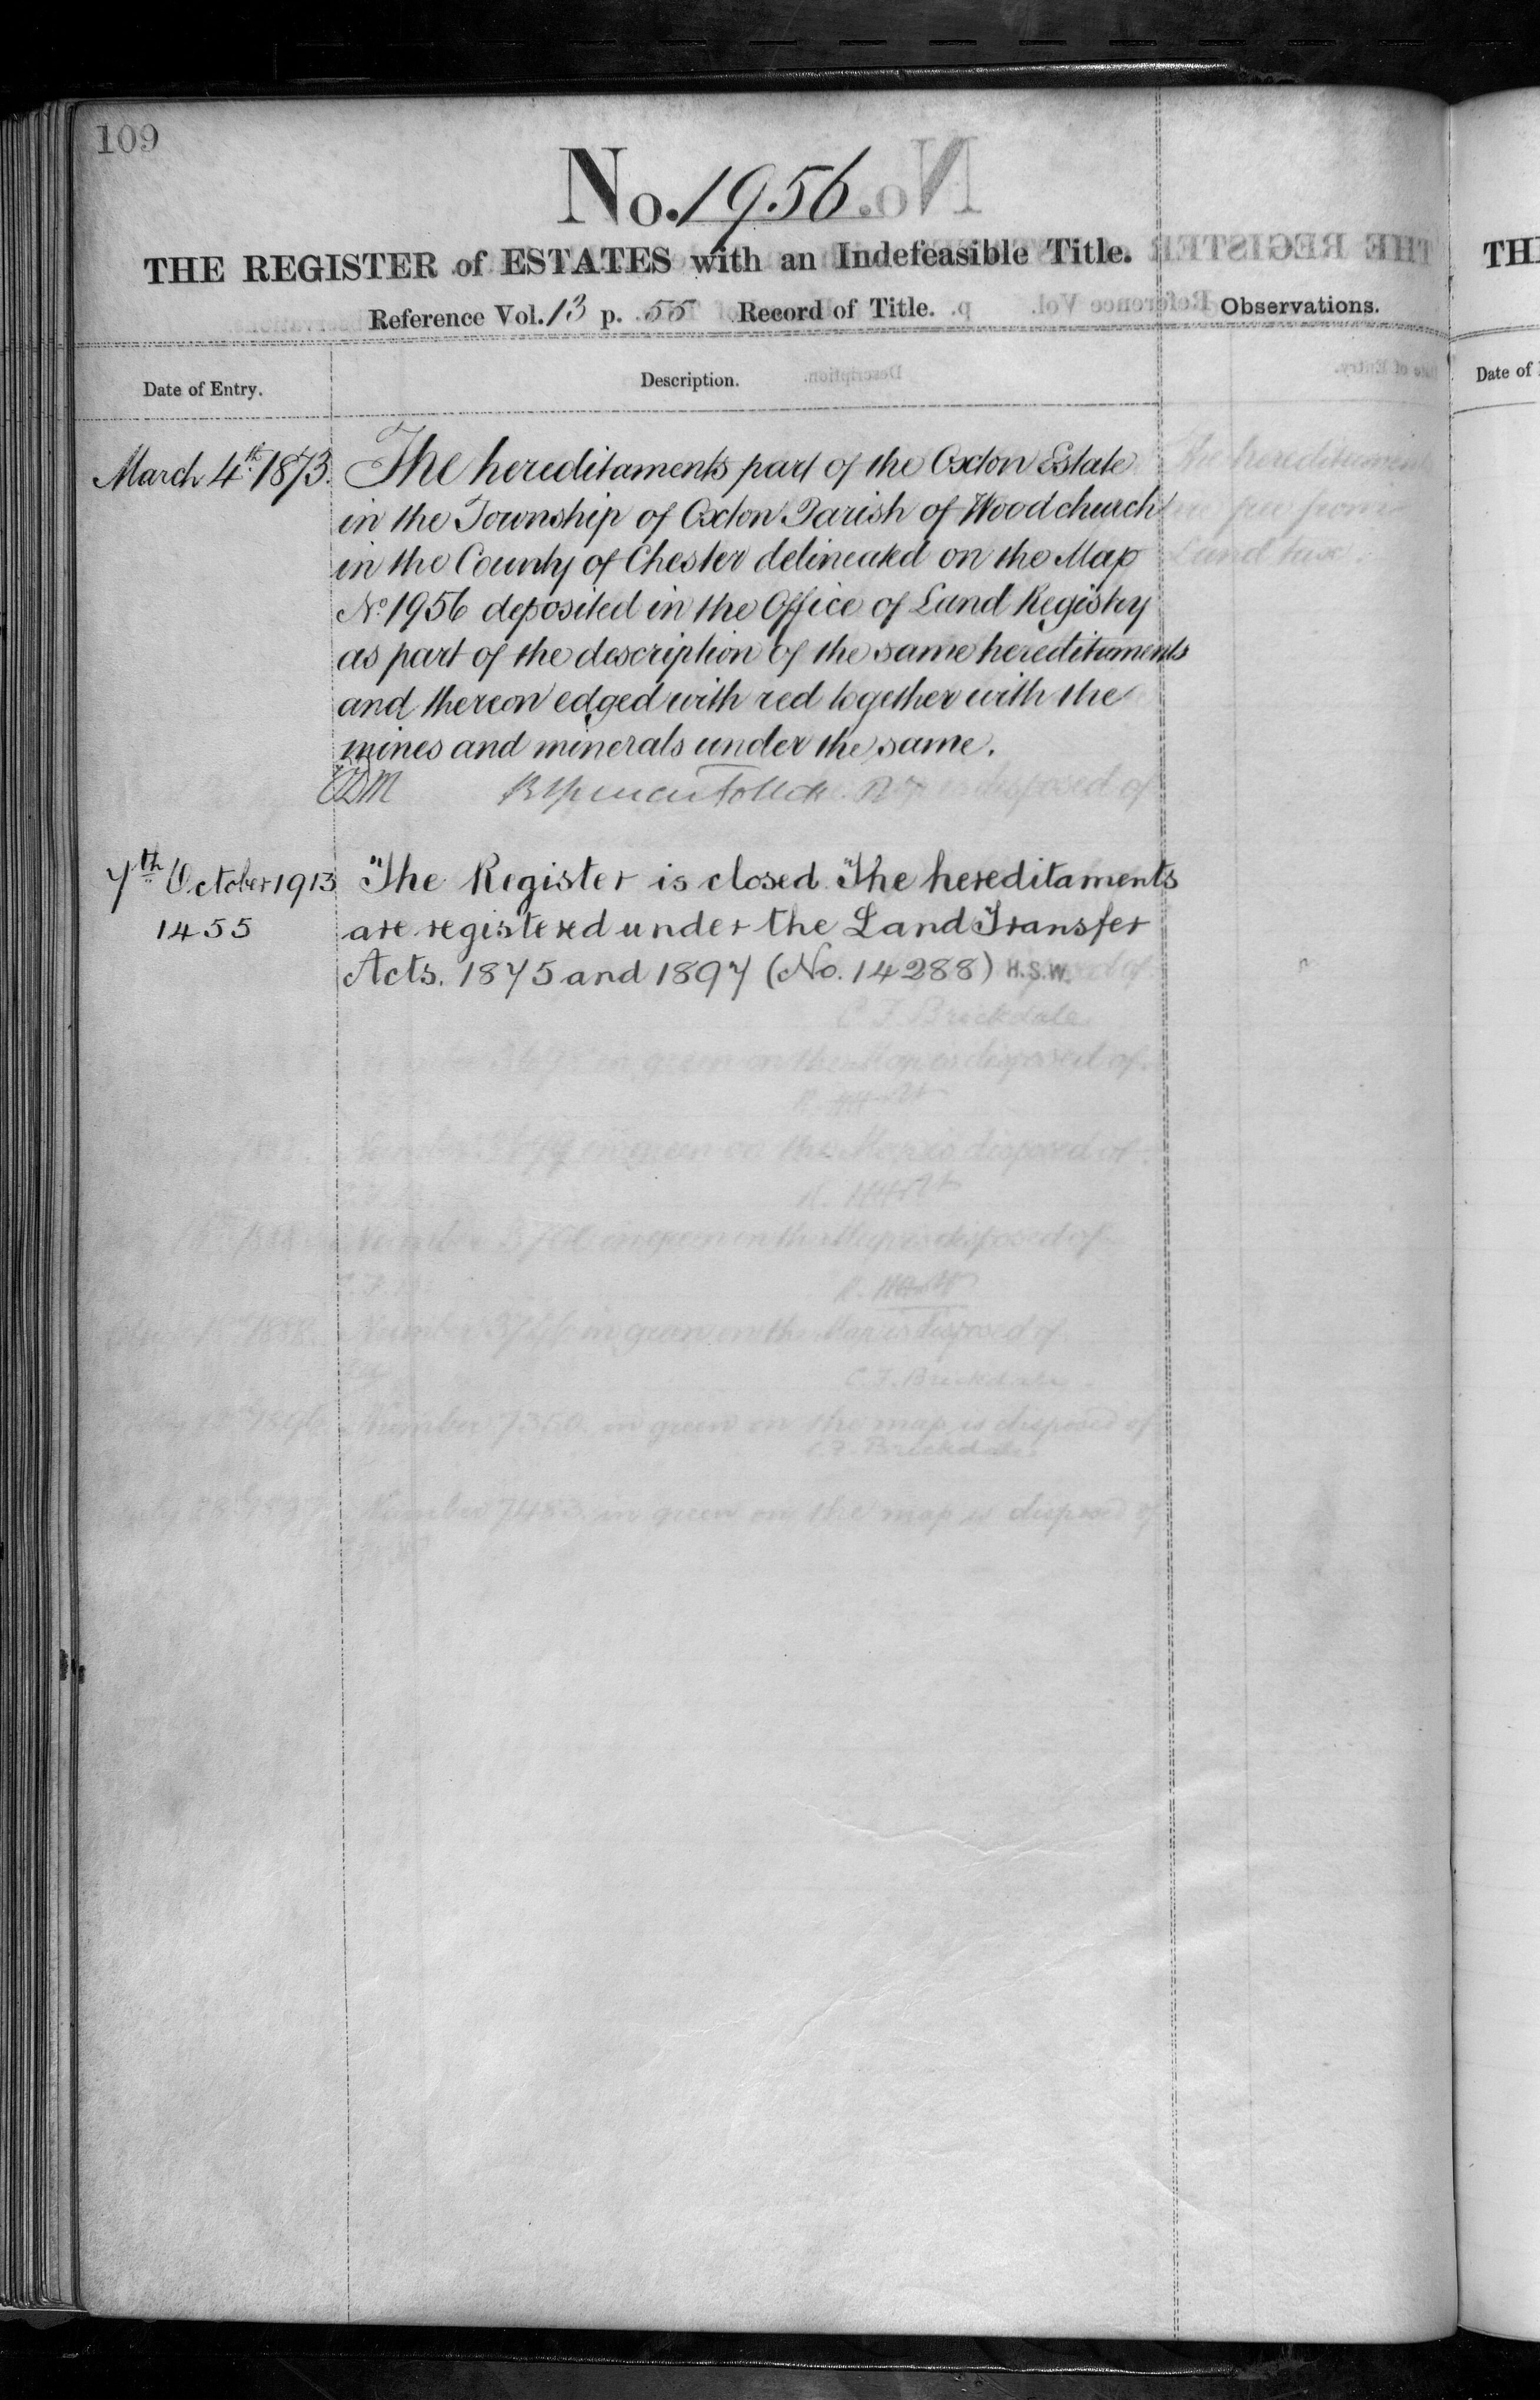 109
No. 1956
THE REGISTER of ESTATES with an Indefeasible Title.
Reference Vol. 13 p. 55 Record of Title.
Observations.
Date of Entry.
Description.
March 4th 1873.
The hereditaments part of the Oxton Estate
in the Township of Oxton Parish of Woodchurch
in the County of Chester delineated on the Map
No 1956 deposited in the Office of Land Registry
as part of the description of the same hereditaments
and thereon edged with red together with the
mines and minerals under the same.
7th October 1913
1455
The Register is closed. The hereditaments
are registered under the Land Transfer
Acts. 1875 and 1897 (No. 14288) H.S.W.
TH
Date of